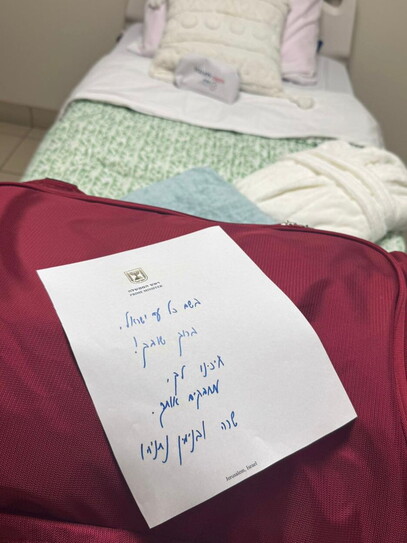 ראש הממשלה
PRIME MINISTER
בשם כל עם ישראל.
ברוך שובך!
חיכינו לך.
מחבקים אותך.
שרה ובנימין נתניהו
Jerusalem, Israel